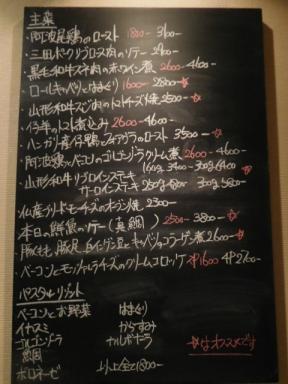 主菜
・阿波尾鶏のロースト 1800- 3100-
・三田ポークリブロース肉のソテー 2900-
・黒毛和牛スネ肉の赤ワイン煮 2600-4600-
・ロールキャベツとはまぐり 1600- 2800-☆
・山形和牛スジ肉のトマトチーズ焼 2500-☆
・仔牛のトマト煮込み 2600-4600-
・ハンガリー産仔鴨とフォアグラのロースト 3500-☆
・阿波鶏とベーコンのゴルゴンゾーラクリーム煮 2600-4600-
・山形和牛リブロインステーキ 160g 3400- 300g 6400
サーロインステーキ 300g 5800-
仏産ブリ・ド・モーチーズのオムレツ 2300
本日の鮮魚のソテー(真鯛) 2500- 3800-☆
豚もも、豚足、白インゲン豆とキャベツのコラーゲン煮 2600-☆
・ベーコンとモッツァレラチーズのクリームコロッケ 2P1600 4P2700-
パスタ or リゾット
ベーコンとお野菜 はまぐり
イカスミ からすみ
ゴルゴンゾーラ カルボナーラ
真鯛 ☆はオススメです
ボロネーゼ 以上全て1800-